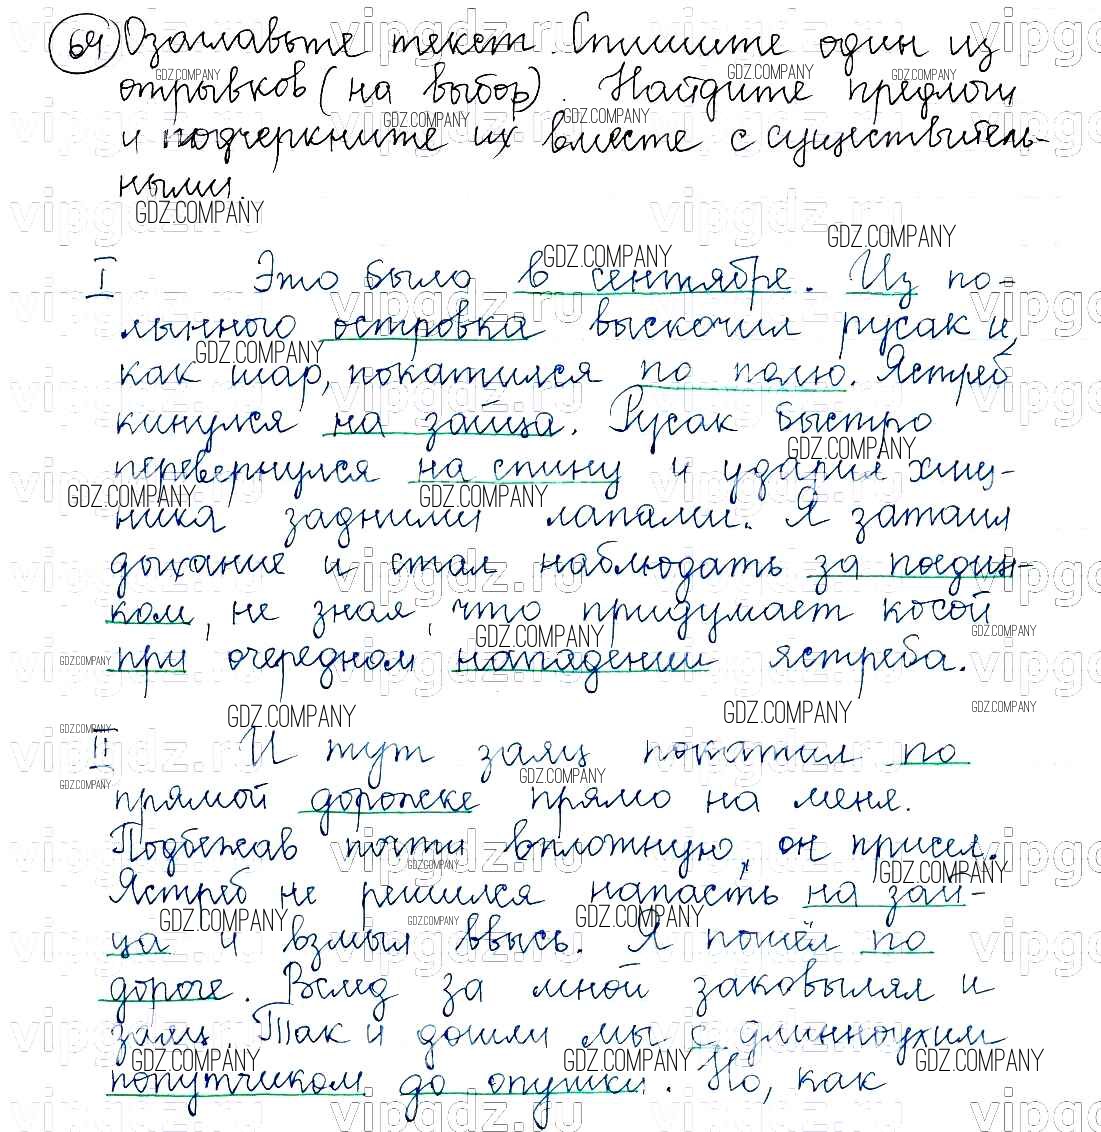 64 Озаглавьте текст. Спишите один из
отрывков (на выбор). Найдите предлоги
и подчеркните их вместе с существитель-
ными.
I Это было в сентябре. Из по-
лынного островка выскочил русак и,
как шар, покатился по полю. Ястреб
кинулся на зайца. Русак быстро
перевернулся на спину и ударил хищ-
ника задними лапами. Я затаил
дыхание и стал наблюдать за поедин-
ком, не зная, что придумает косой
при очередном нападении ястреба.
II И тут заяц покатил по
прямой дорожке прямо на меня.
Подбежав почти вплотную, он присел.
Ястреб не решился напасть на зай-
ца и взмыл ввысь. Я пошёл по
дороге. Вслед за мной заковылял и
заяц. Так и дошли мы с длинноухим
попутчиком до опушки. Но, как